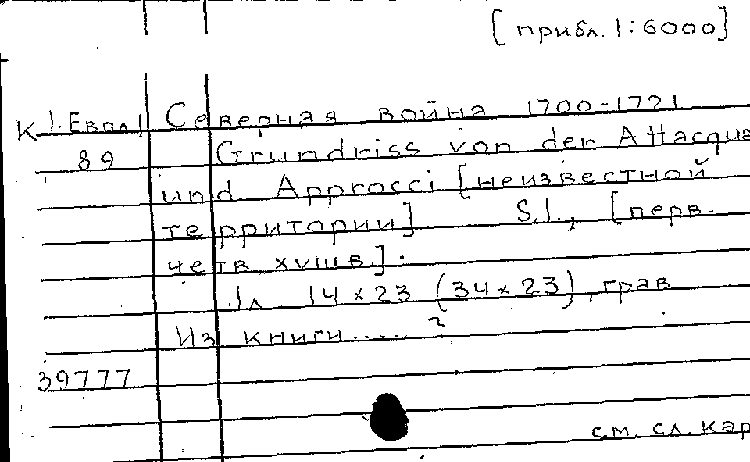 [прибл. 1:6000]
К 1-Евол1 Северная война 1700-1721
89 Grundriss von der Attacque
und Approcci [неизвестной
территории] S.l., [перв.
четв. XVIII в.].
1л 14 x 23 (34 x 23), грав
Из книги..... ?
39777
см. сл. кар